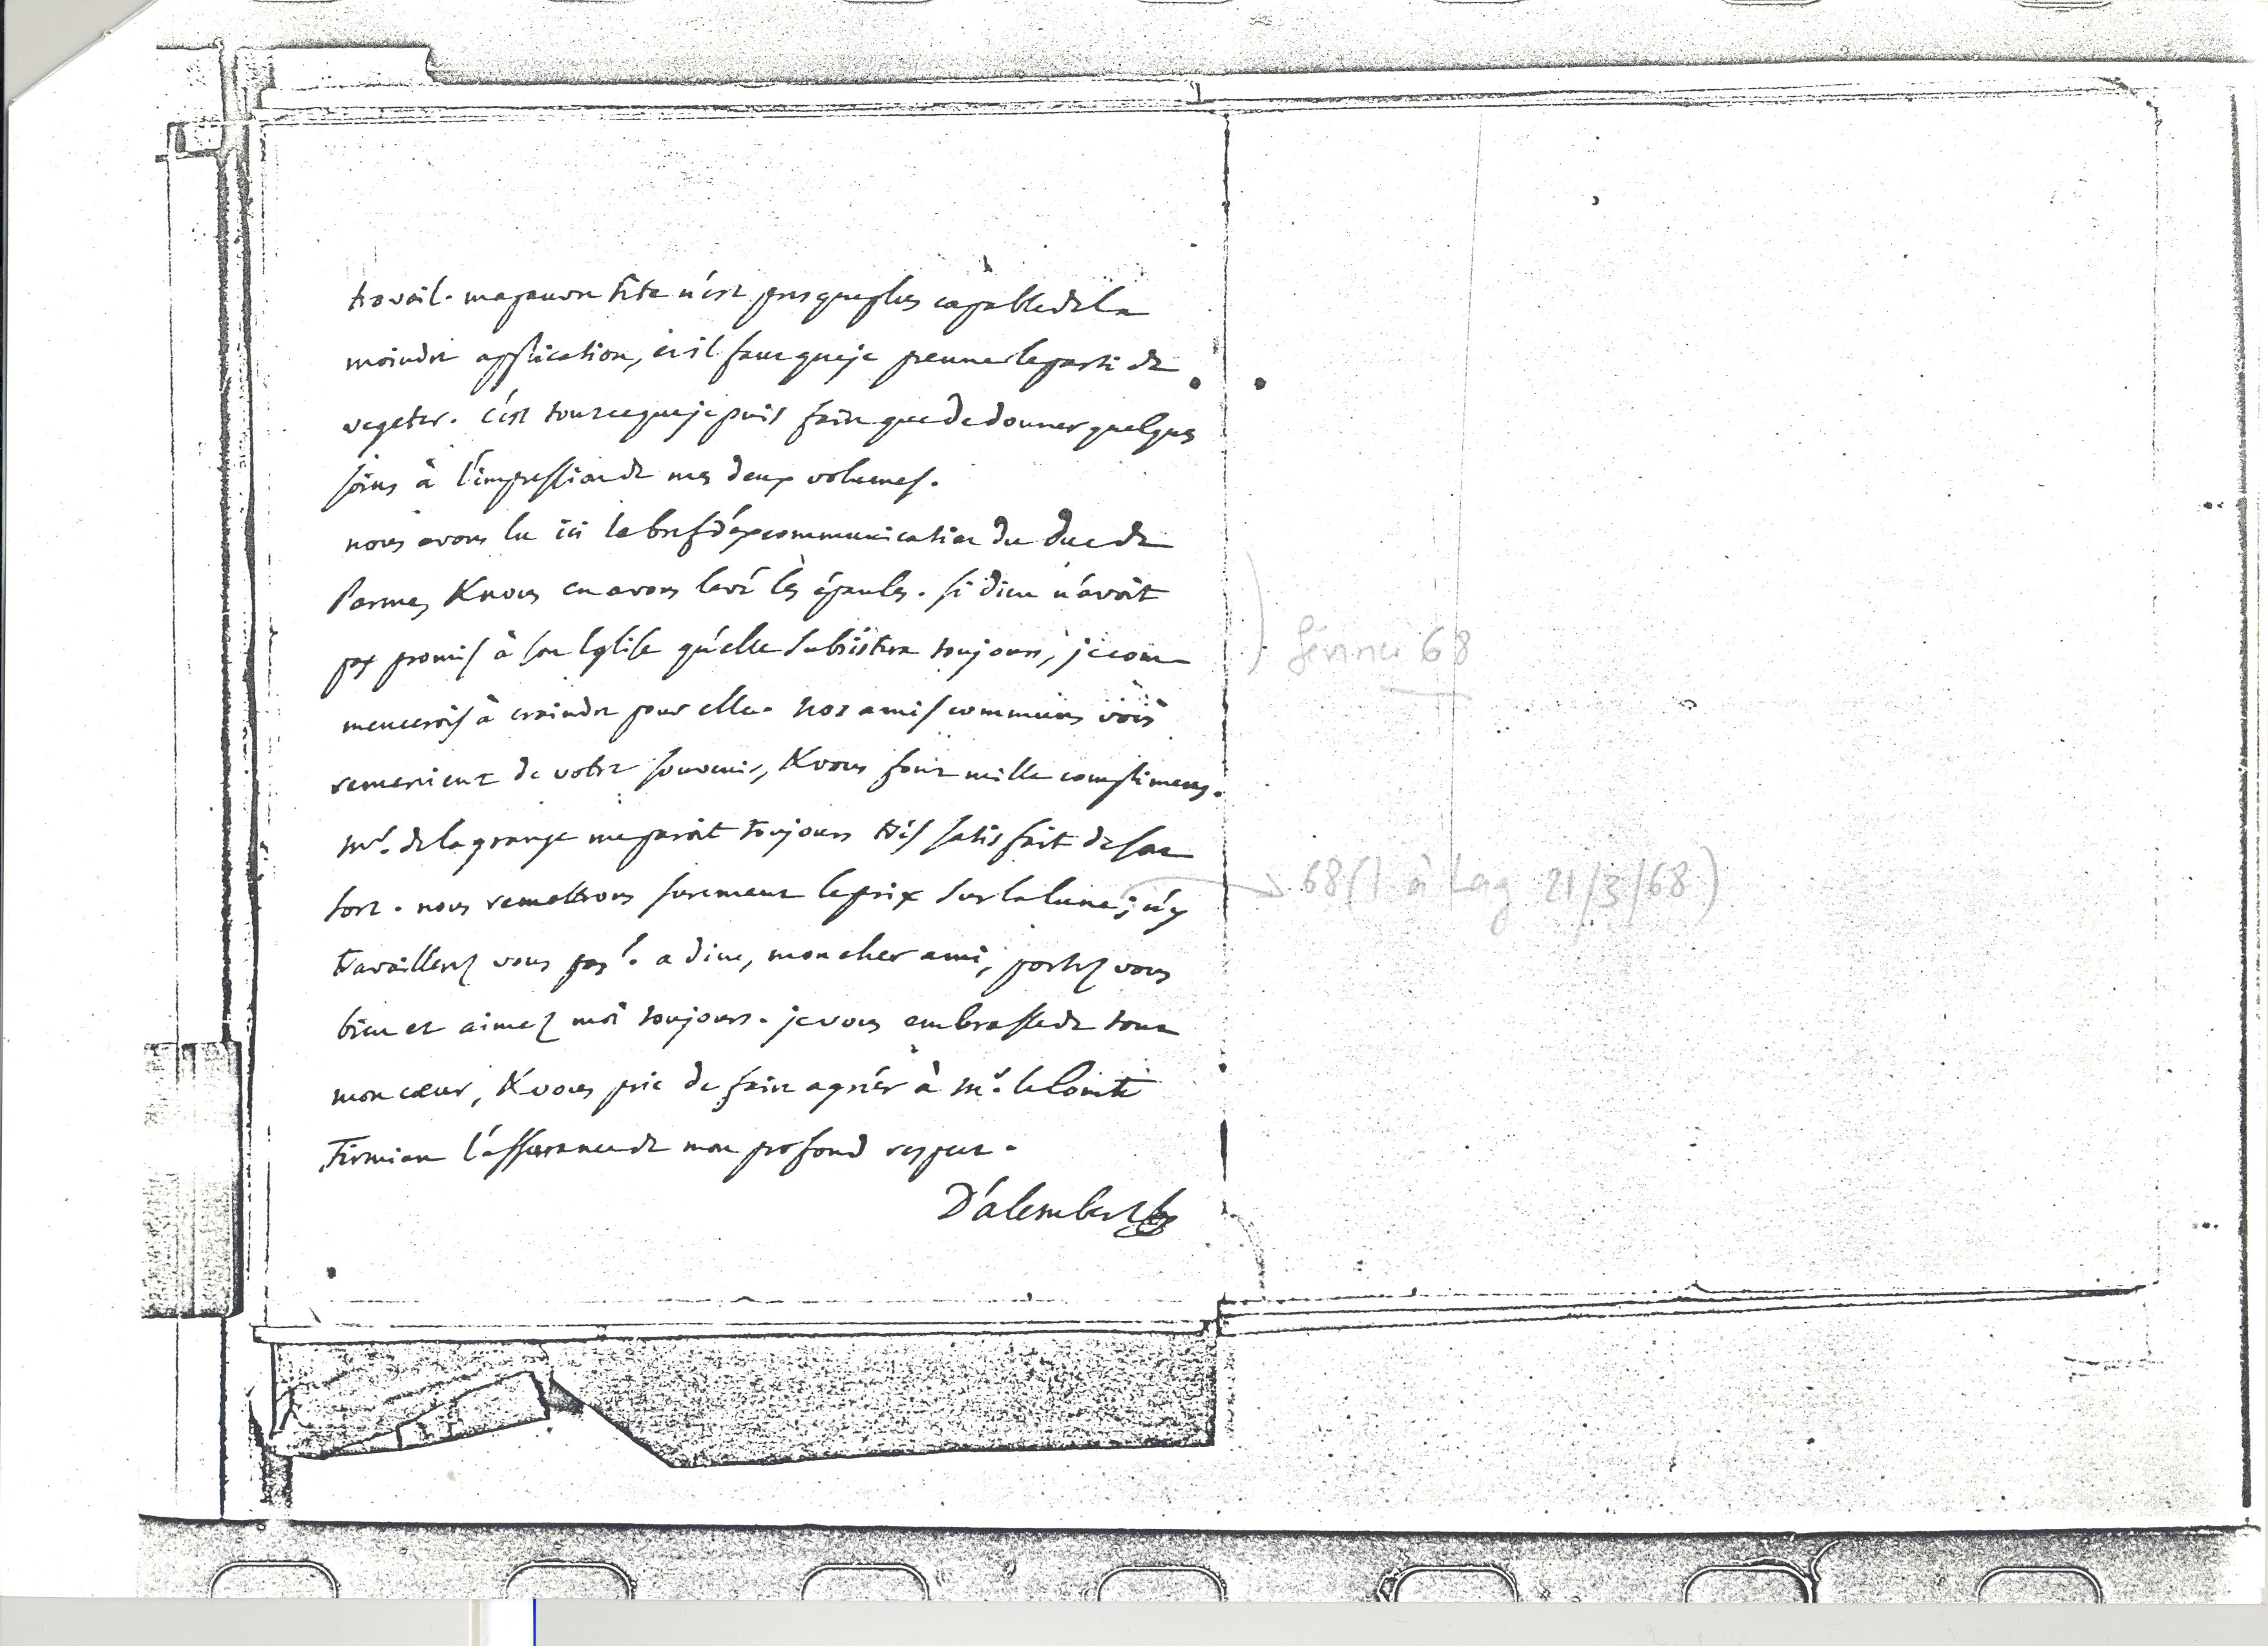 travail. ma pauvre tête n'est presque plus capable de la
moindre application, et il faut que je prenne le parti de
vegeter. c'est tout ce que je puis faire que de donner quelques
soins à l'impression de mes deux volumes.
nous avons lu ici le bref d'excommunication du Duc de
Parme, & nous en avons levé les épaules. si dieu n'avoit
pas promis à son Eglise qu'elle subsistera toujours, je com-
mencerois à craindre pour elle. nos amis communs vous
remercient de votre souvenir, & vous font mille complimens.
Mr. de la grange me paroit toujours très satisfait de son
sort. nous remettrons surement le prix sur la lune; n'y
travaillerez vous pas? adieu, mon cher ami, portez vous
bien et aimez moi toujours. je vous embrasse de tout
mon cœur, & vous prie de faire agréer à Mr. le Comte
Firmian l'assurance de mon profond respect.
D'alembert
février 68
68 (1 à Lag 21/3/68)